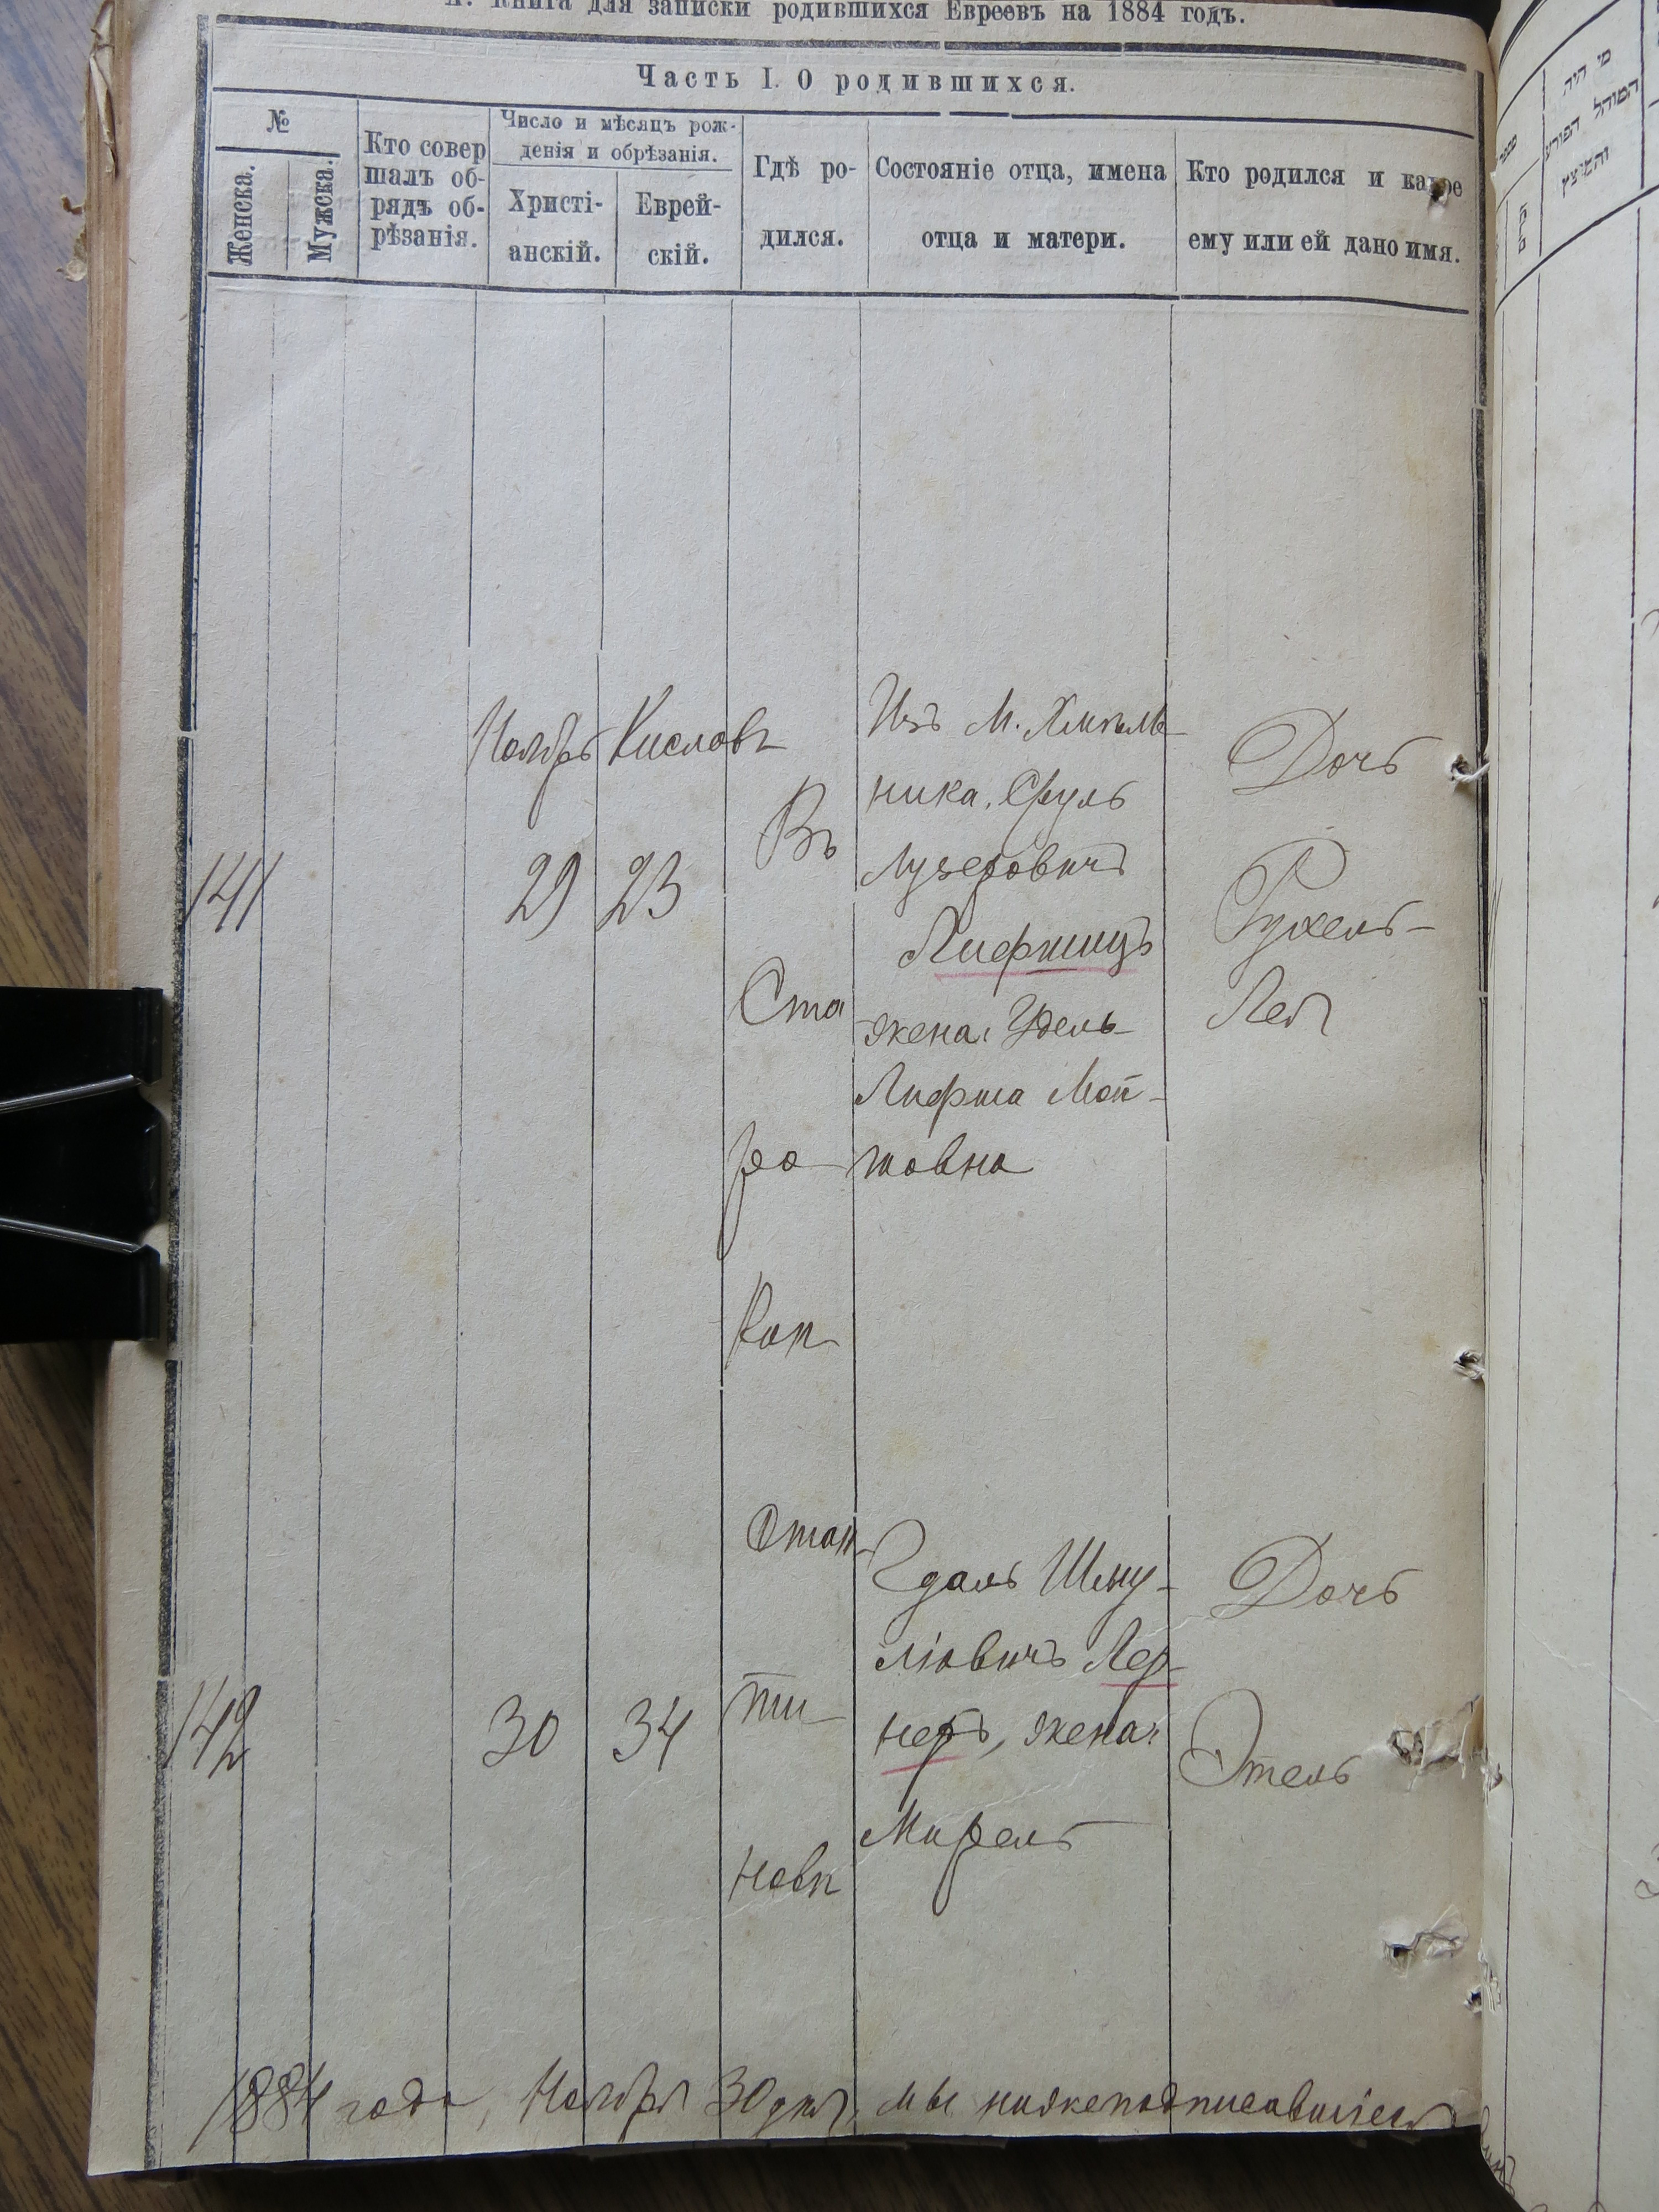 I. Книга для записки родившихся Евреевъ на 1884 годъ.
Часть I. О родившихся.
№
Женска.
Мужска.
Кто совер
шалъ об-
рядъ об-
рѣзанія.
Число и мѣсяцъ рож-
денія и обрѣзанія.
Христі-
анскій.
Еврей-
скій.
Гдѣ ро-
дился.
Состояніе отца, имена
отца и матери.
Кто родился и какое
ему или ей дано имя.
141
Ноябрь
29
Кислова
23
Въ
Ста
ро
Кон
Изъ М. Хмѣль-
ника, Сруль
Лузеровичъ
Лифшицъ
жена: Удель
Лифша Мой-
шовна
Дочь
Рухель-
Лея
142
30
34
стан-
ти
новѣ
Гдаль Шму-
ліовичъ Лер-
неръ, жена:
Мирель
Дочь
Этель
1884 года, Ноября 30 дня, мы нижеподписавшіеся
מי היה
המוהל הפורע
והמוצץ